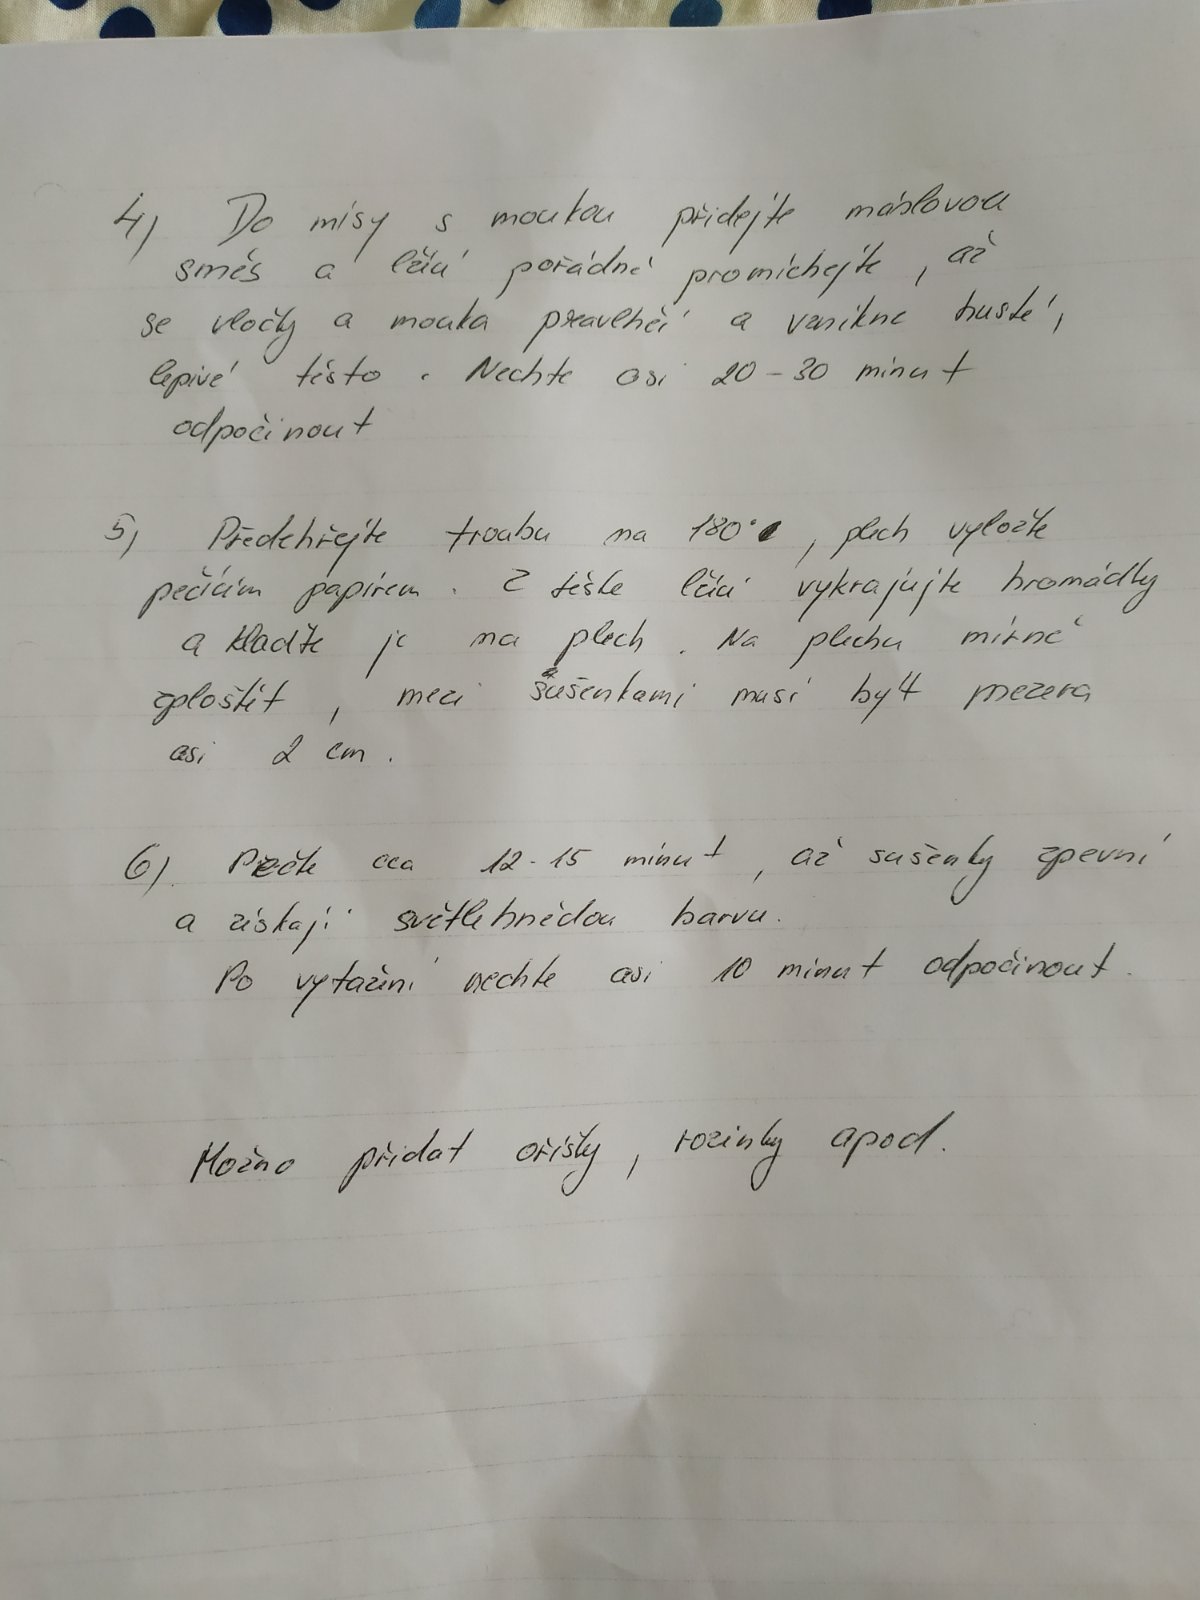 4) Do mísy s moukou přidejte máslovou
směs a lžící pořádně promíchejte, až
se vločky a mouka převlhčí a vznikne husté,
lepivé těsto. Nechte asi 20-30 minut
odpočinout
5) Předehřejte troubu na 180°, plech vyložte
pečícím papírem. Z těsta lžící vykrajujte hromádky
a klaďte je na plech. Na plechu mírně
zploštit, mezi sušenkami musí být mezera
asi 2 cm.
6) Pečte cca 12-15 minut, až sušenky zpevní
a získají světlehnědou barvu.
Po vytažení nechte asi 10 minut odpočinout.
Možno přidat oříšky, rozinky apod.